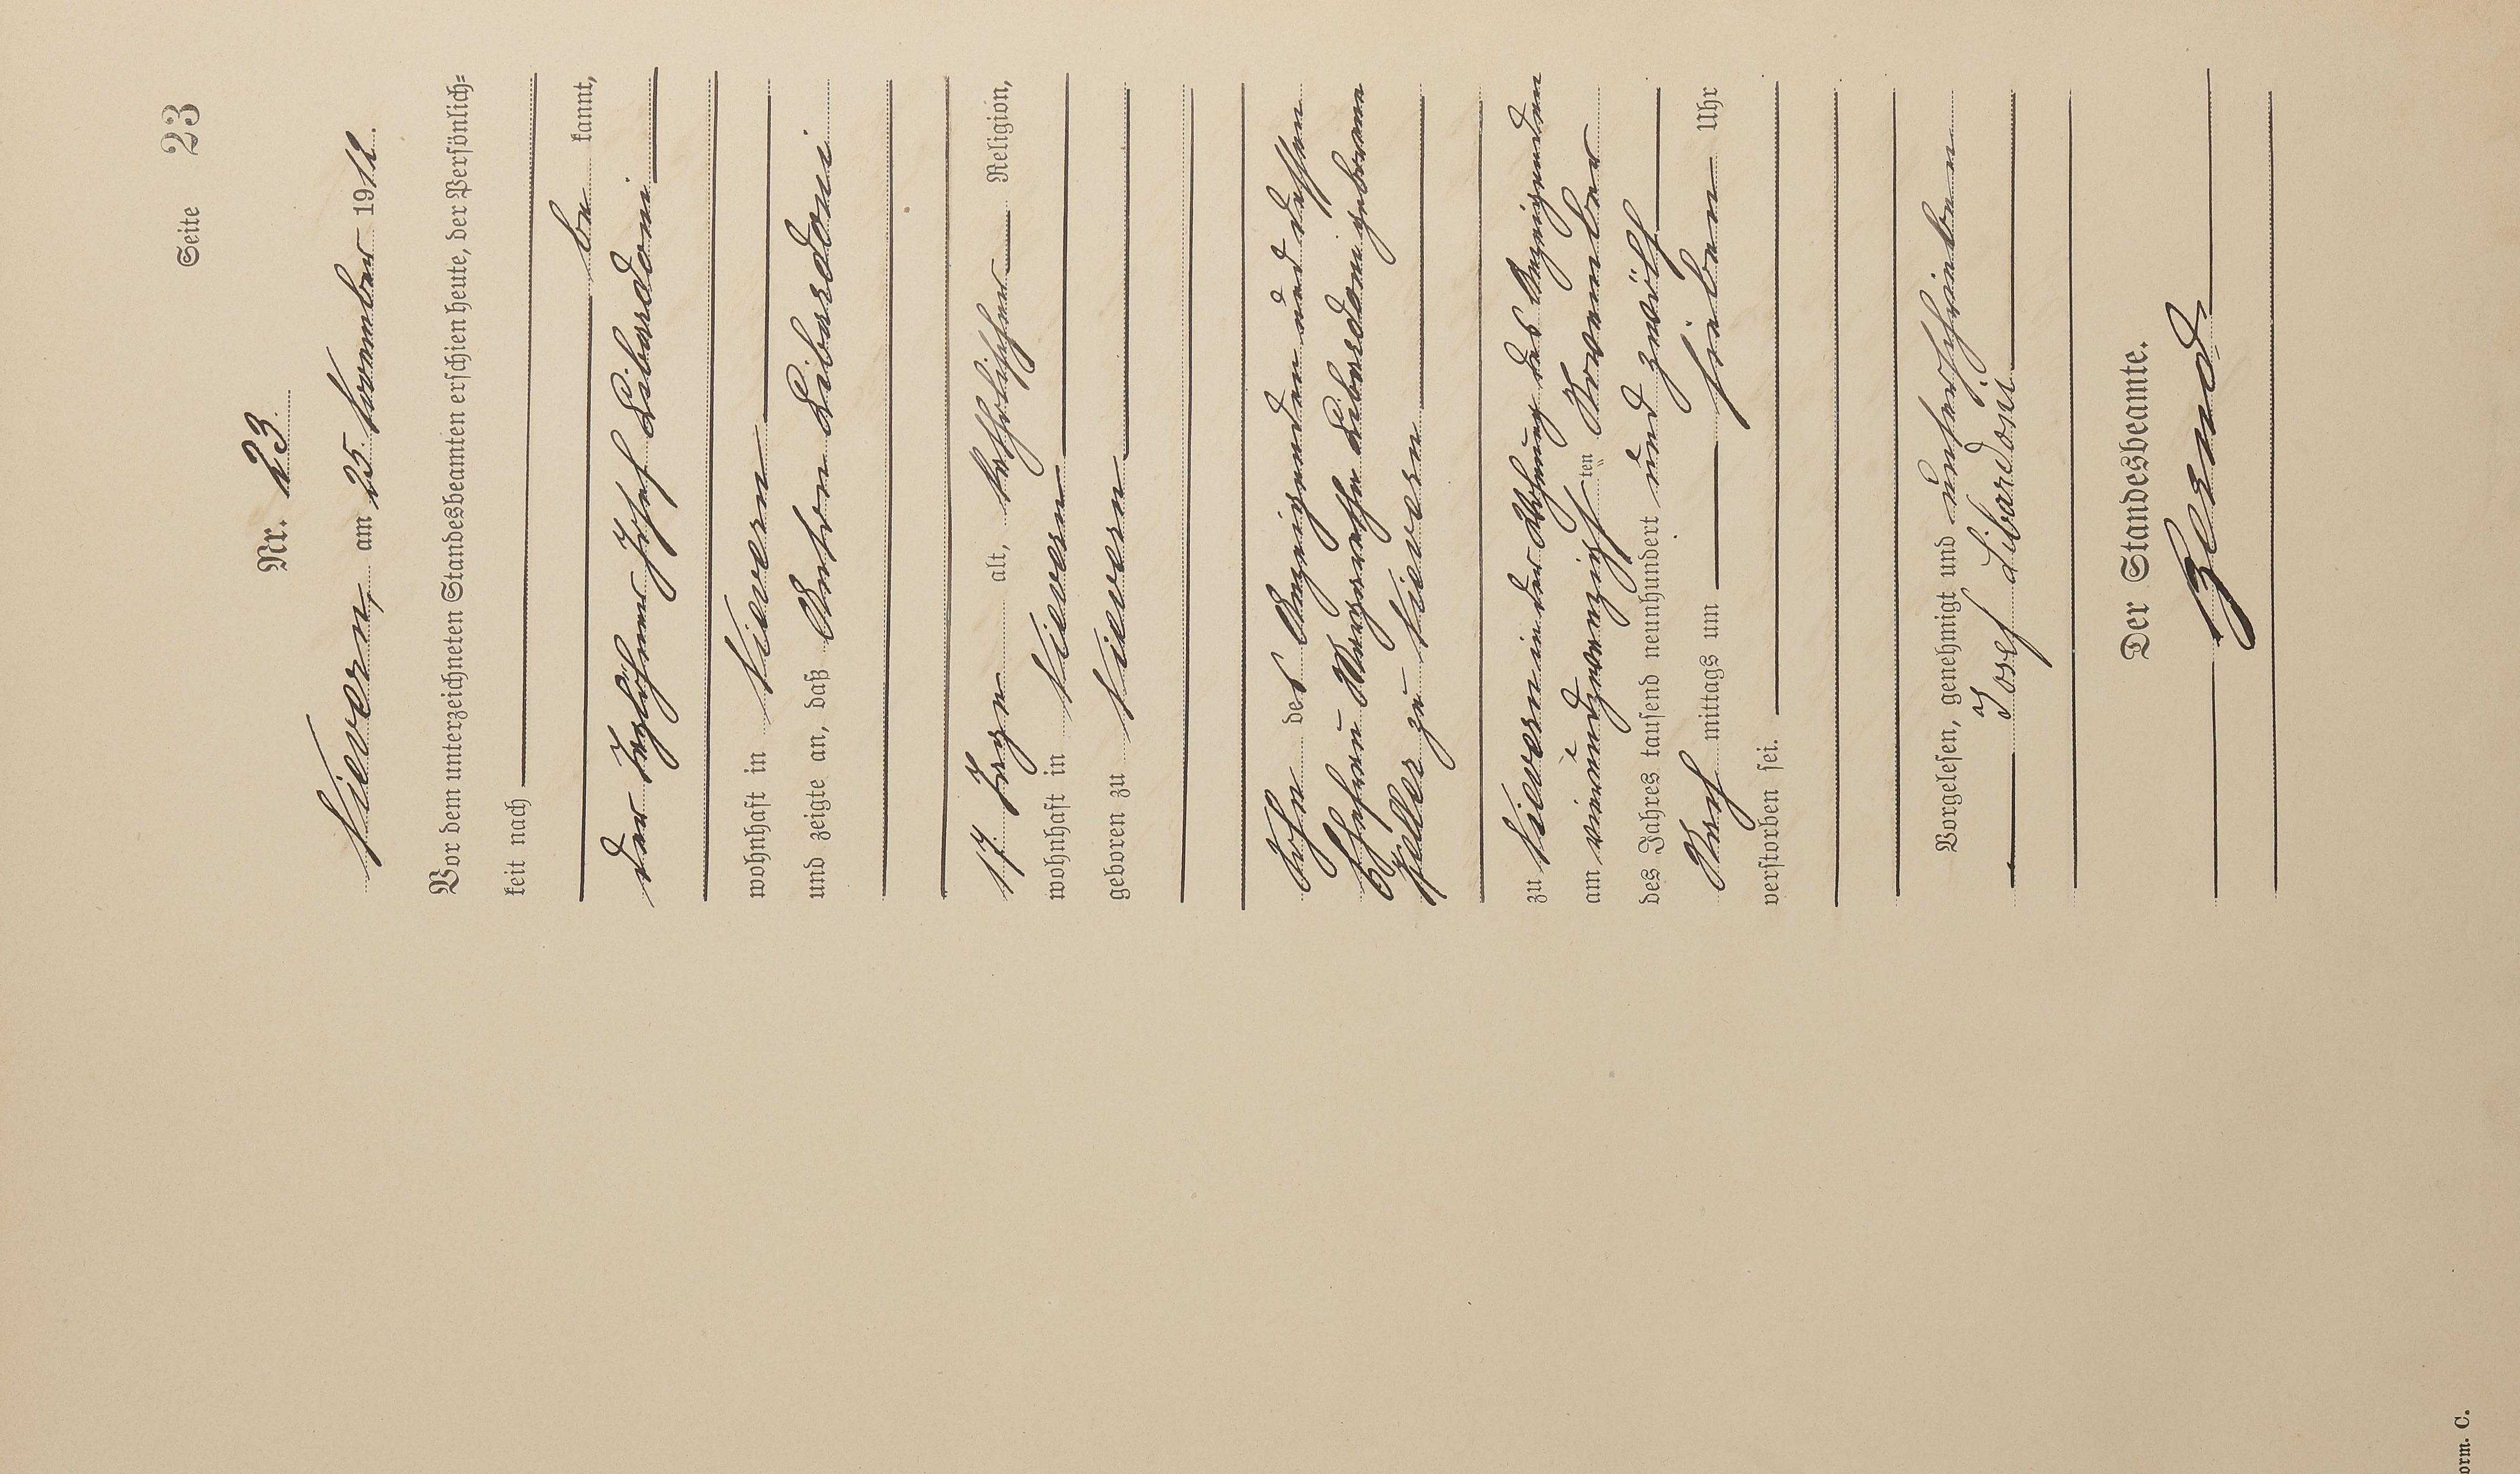 Seite 23
Nr. 23.
Nievern, am 25. November 1912.
Vor dem unterzeichneten Standesbeamten erschien heute, der Persönlich=
keit nach
be kannt,
der Taglöhner Josef Libardoni
wohnhaft in Nievern
und zeigte an, daß Anton Libardoni
17 Tage alt, katholischer Religion,
wohnhaft in Nievern
geboren zu Nievern
Sohn des Anzeigenden und dessen
Ehefrau Margaretha Libardoni geborene
Keller zu Nievern
zu Nievern in der Wohnung des Anzeigenden
am vierundzwanzigsten November
des Jahres tausend neunhundert und zwölf
Nach mittags um sieben Uhr
verstorben sei.
Vorgelesen, genehmigt und unterschrieben
Josef Libardoni
Der Standesbeamte.
orm. C.